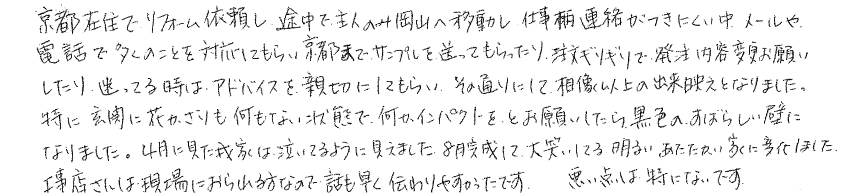 京都在住でリフォーム依頼し、途中で主人のみ岡山へ移動し、仕事柄連絡がつきにくい中、メールや
電話で多くのことを対応してもらい京都までサンプルを送ってもらったり、注文ギリギリで、発注内容変更お願い
したり、迷ってる時は、アドバイスを親切にしてもらい、その通りにして、想像以上の出来映えとなりました。
特に玄関に花かざりも何もない状態で、何かインパクトを、とお願いしたら、黒色のすばらしい壁に
なりました。4月に見た我家は、泣いてるように見えました。8月完成して、大笑いしてる明るいあたたかい家に変化しました。
工事店さんは現場におられる方なので話も早く伝わりやすかったです。 悪い点は特にないです。